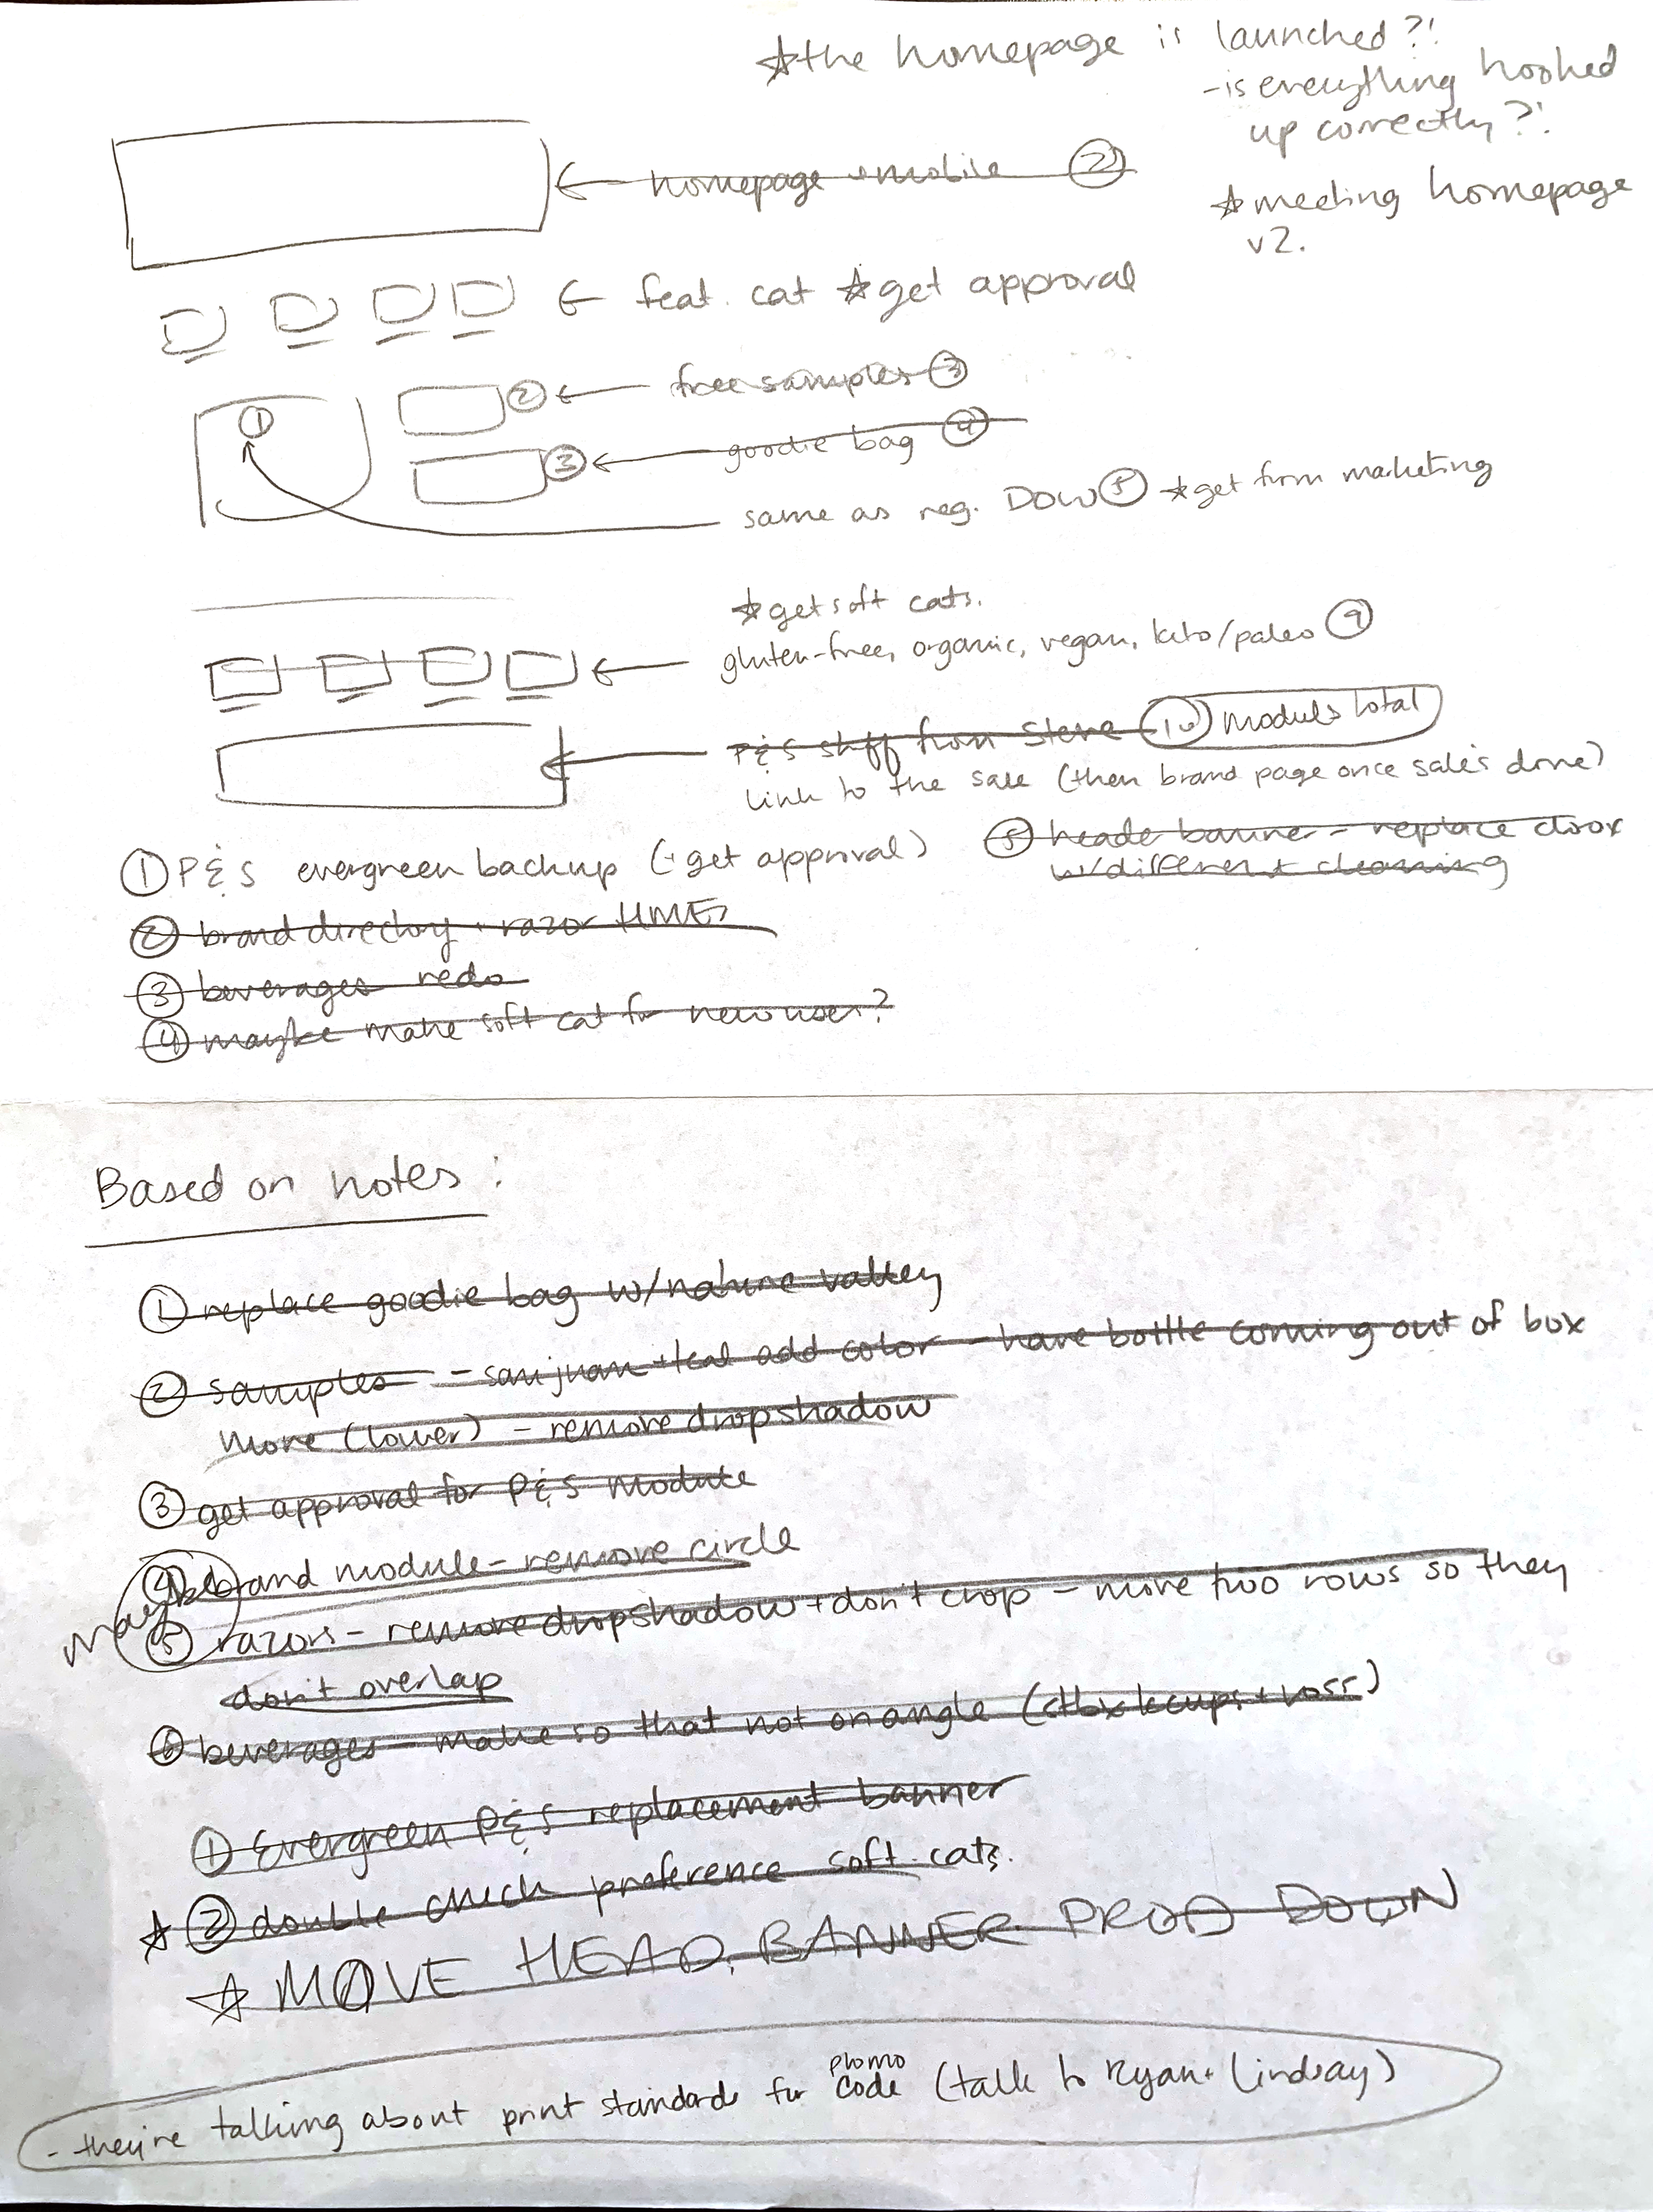 ☆the homepage is launched?!
-is everything hooked
up correctly?!
← homepage + mobile ②
☆meeting homepage
v2.
← feat. cat ☆get approval
② ← free samples ③
①
③ ← goodie bag ④
same as reg. DOW ⑤ ☆get from marketing
☆get soft cats.
← gluten-free, organic, vegan, keto/paleo ⑨
← P&S stuff from Steve ⑩ modules total
link to the sale (then brand page once sale's done)
① P&S evergreen backup (+ get approval)
⑤ header banner - replace clrox
w/different cleaning
② brand directory + razor
③ beverages redo
④ maybe make soft cat for new user?
Based on notes:
① replace goodie bag w/nature valley
② samples - sanjuan + teal add color - have bottle coming out of box
more (lower) - remove dropshadow
③ get approval for P&S module
④ brand module - remove circle
maybe
⑤ razors - remove dropshadow + don't crop - move two rows so they
don't overlap
⑥ beverages - make so that not on angle (kcups + voss)
① Evergreen P&S replacement banner
☆ ② double check preference soft cats.
☆ MOVE HEAD. BANNER PROD DOWN
- they're talking about print standards for promo code (talk to Ryan + Lindsay)